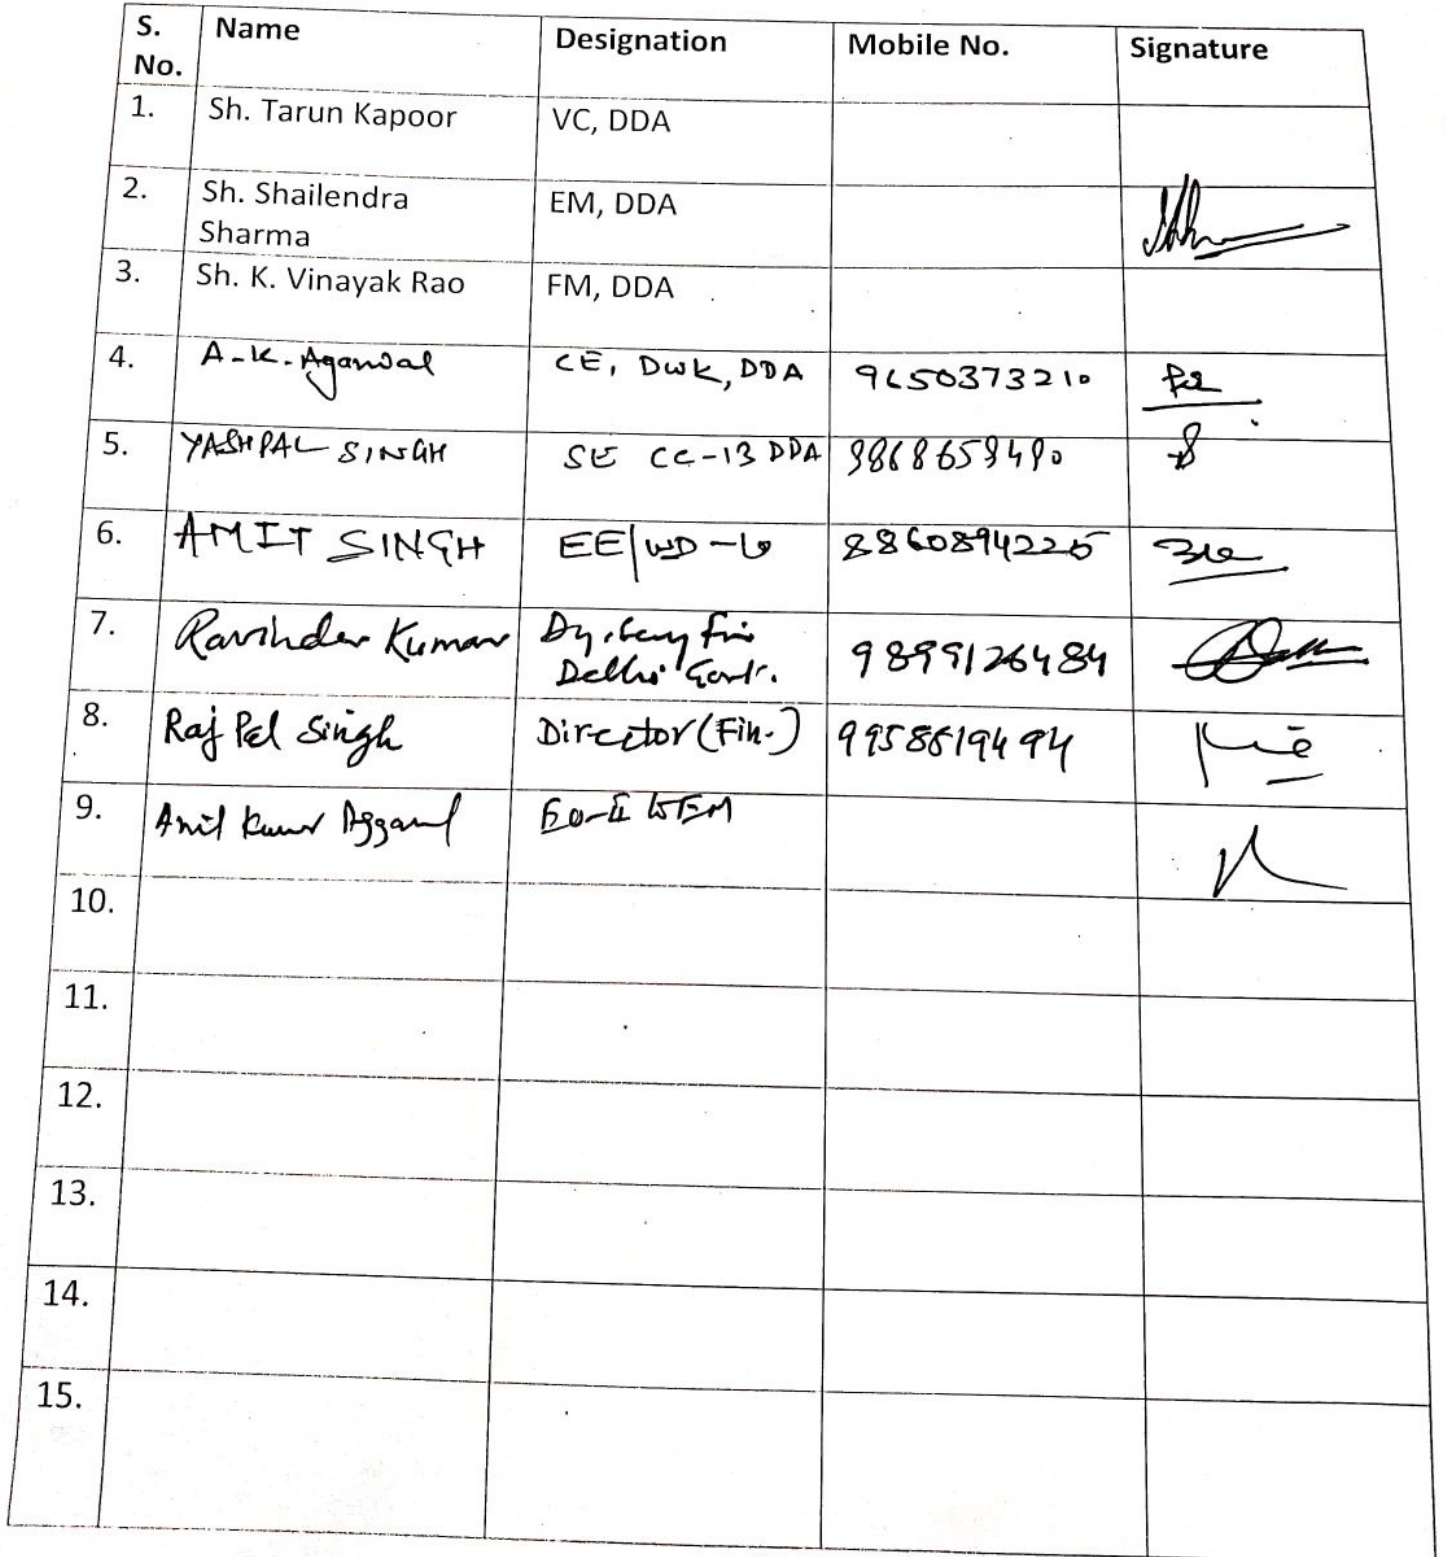 S. No. Name Designation Mobile No. Signature
1. Sh. Tarun Kapoor VC, DDA
2. Sh. Shailendra Sharma EM, DDA
3. Sh. K. Vinayak Rao FM, DDA
4. A-K. Agarwal CE, DWK, DDA 9650373210
5. YASHPAL SINGH SE CC-13 DDA
6. AMIT SINGH EE/WD-6 8860894225
7. Ravinder Kumar Dy. Secy Fin
Delhi Govt. 9899126484
8. Raj Pal Singh Director (Fin.)
9. Anil Kumar Aggarwal
10.
11.
12.
13.
14.
15.